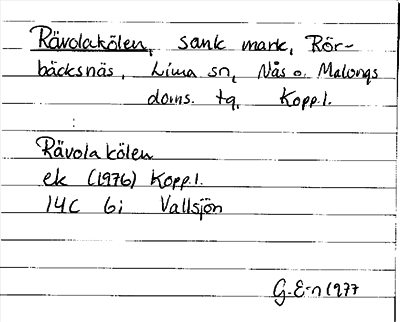 Rävolakölen, sank mark, Rör-
bäcksnäs, Lima sn, Nås o. Malungs
doms. tg, Kopp.l.
Rävolakölen
ek (1976) Kopp.l.
14C 6i Vallsjön
G.E-n 1977